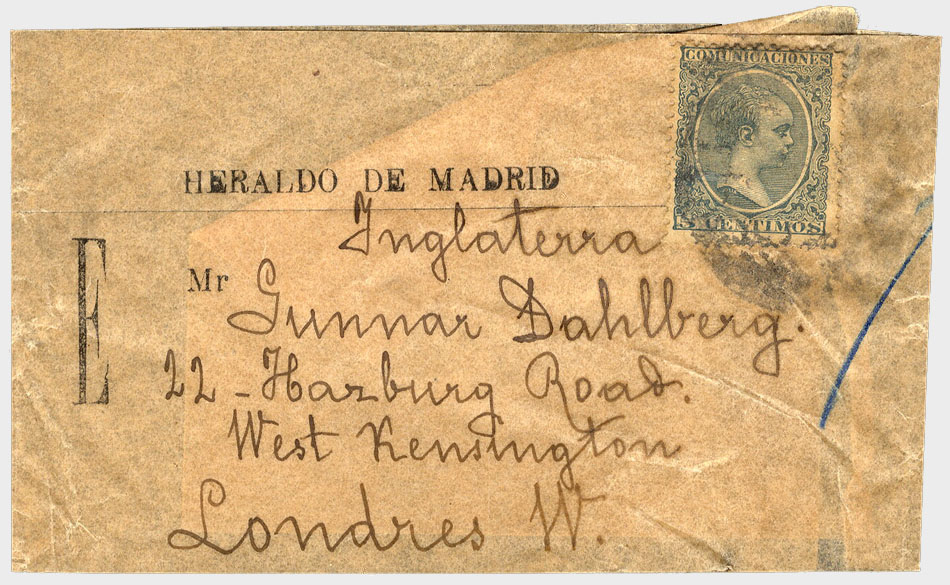 COMUNICACIONES
5 CENTIMOS
HERALDO DE MADRID
Inglaterra
E
Mr Gunnar Dahlberg.
22 - Harburg Road.
West Kensington
Londres W.